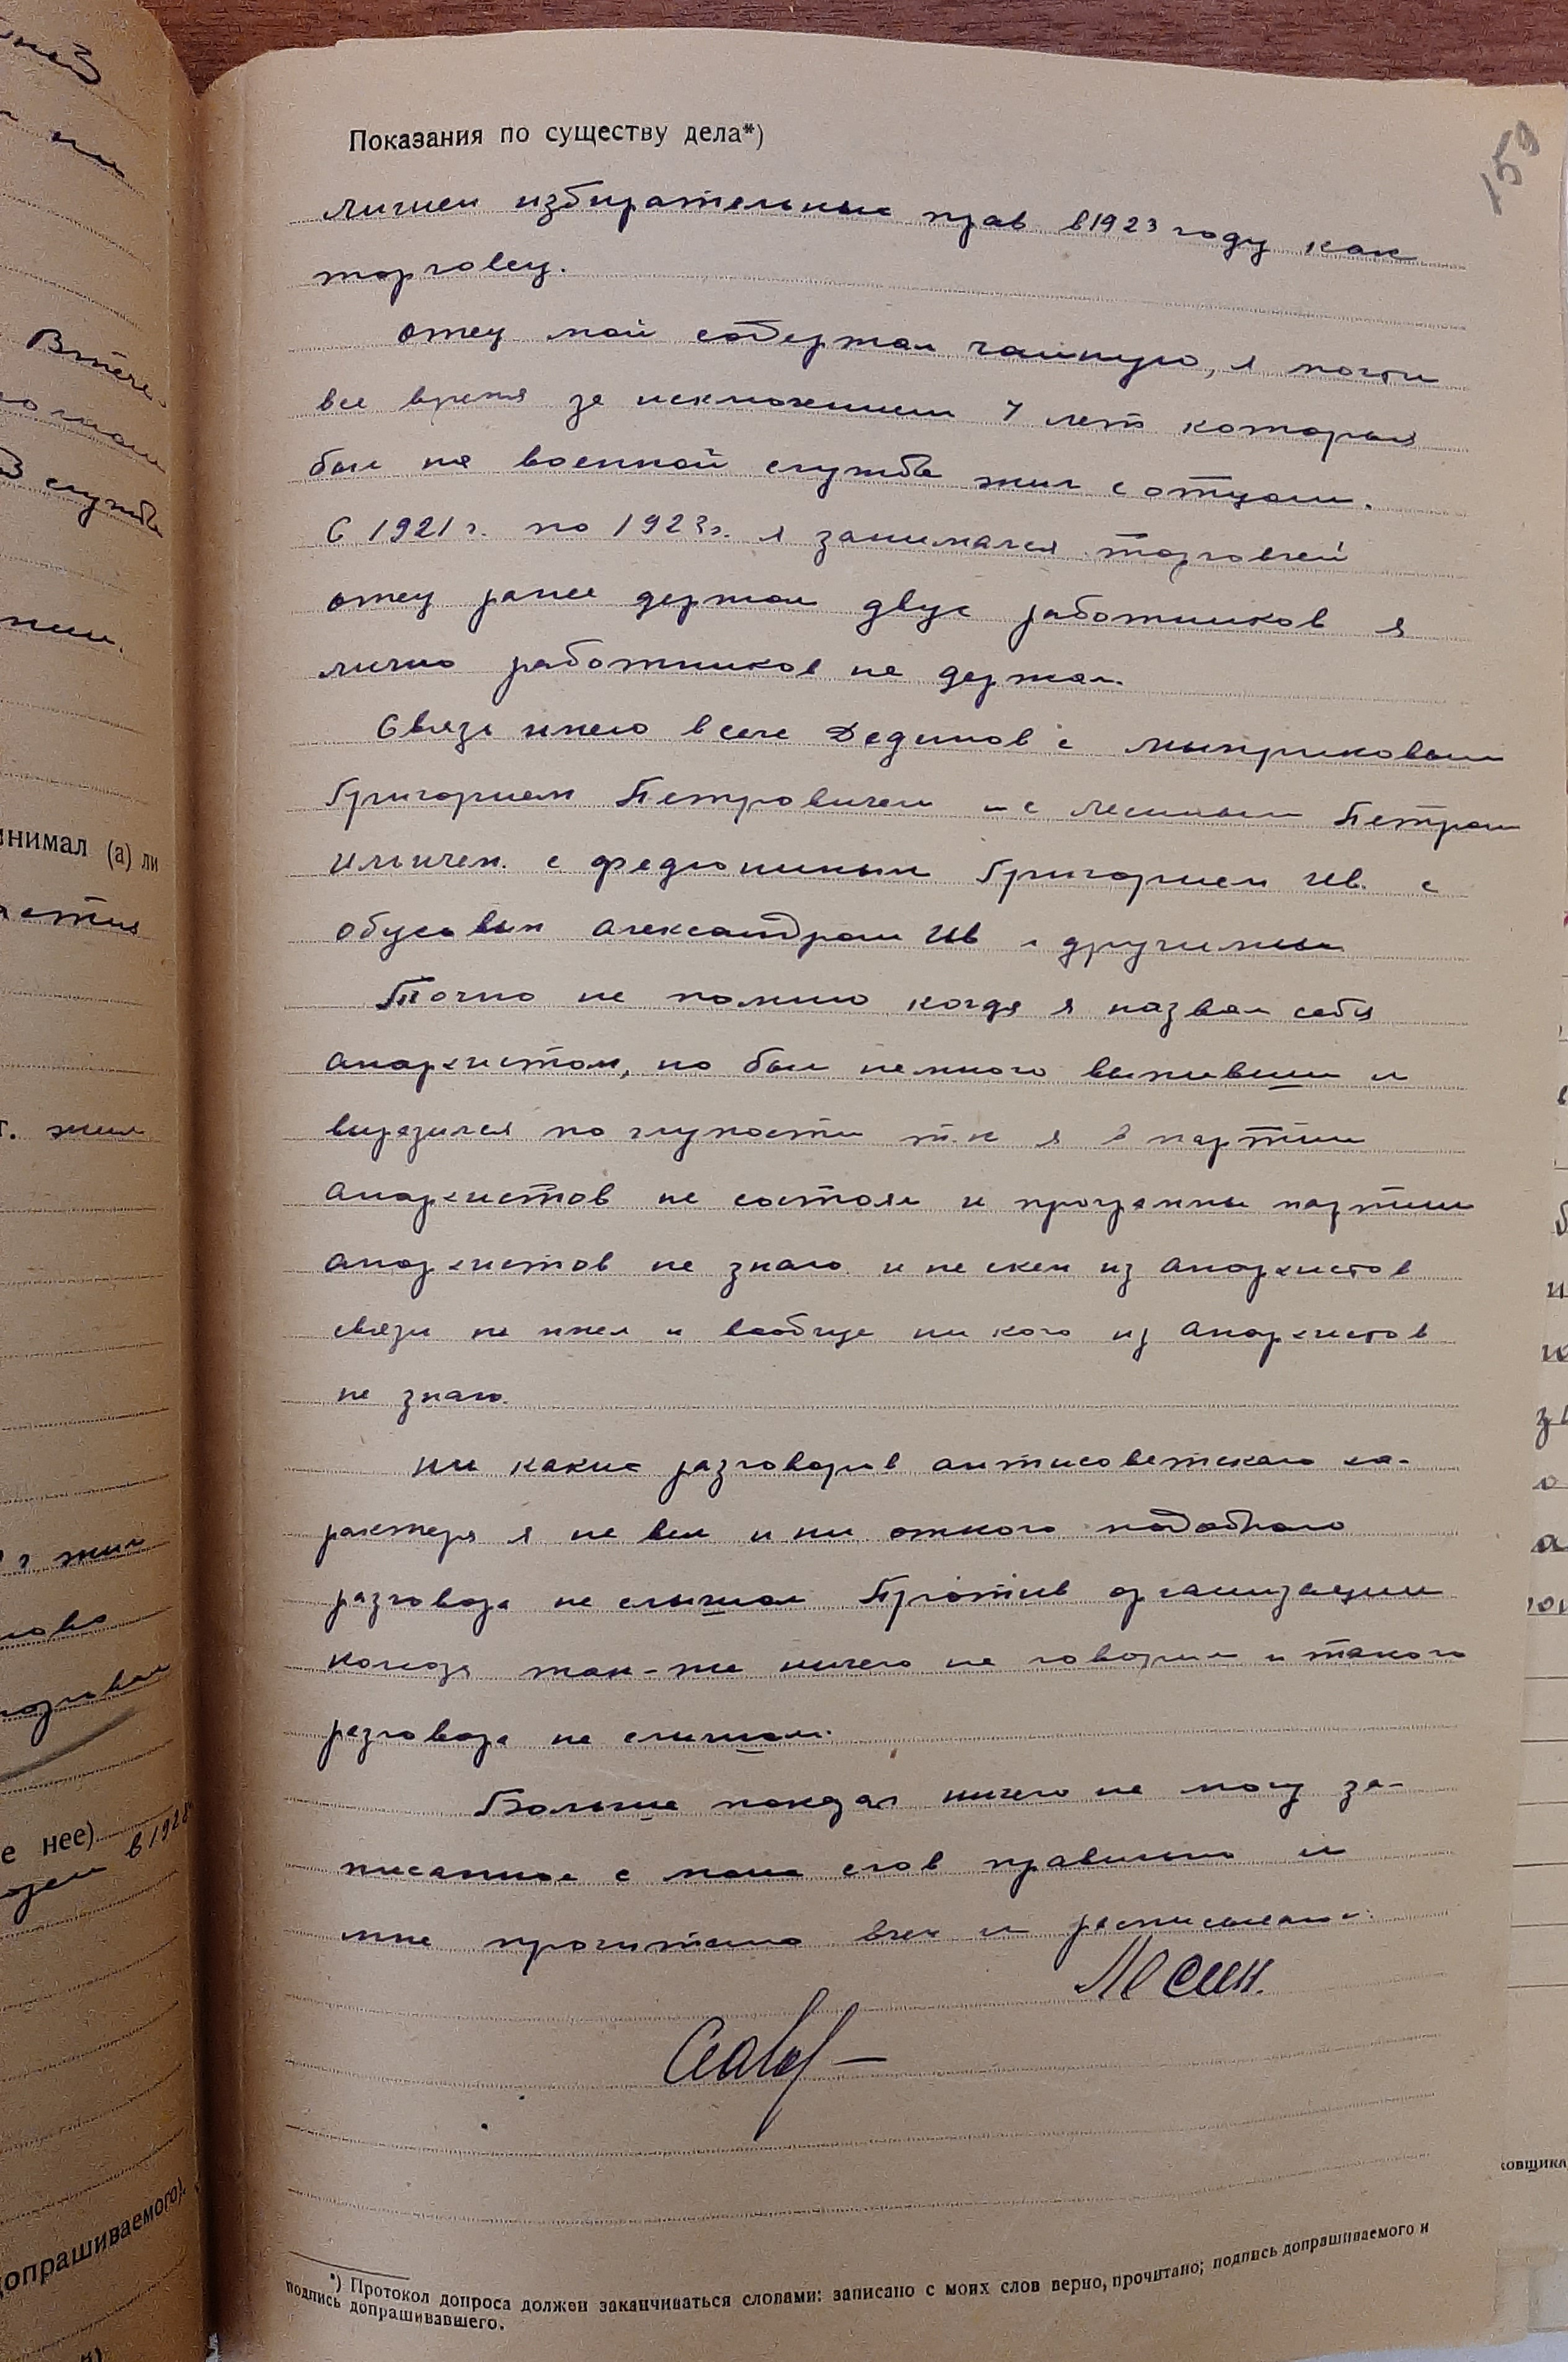 159
Показания по существу дела*)
лишен избирательных прав в 1923 году как
торговец.
отец мой содержал чайную, я почти
все время за исключением 7 лет которых
был на военной службе жил с отцом.
С 1921 г. по 1923 г. я занимался торговлей
отец ранее держал двух работников я
лично работников не держал.
Связь имею в селе Дединов с
Григорием Петровичем и с Лесиным Петром
Ильичем. с Федюниным Григорием Ив. с
Обусовым Александром Ив и другими
Точно не помню когда я назвал себя
анархистом, но был немного выпивши и
выразился по глупости т.к я в партии
анархистов не состоял и программы партии
анархистов не знаю и не скем из анархистов
связи не имел и вообще ни кого из анархистов
не знаю.
ни каких разговоров антисоветского ха-
рактера я не вел и ни откого подобного
разговора не слышал Против организации
колхоза так-же ничего не говорил и такого
разговора не слышал.
Больше показат ничего не могу за-
писанное с моих слов правильно и
мне прочитано в чем и расписываюс.
Лесин.
*) Протокол допроса должен заканчиваться словами: записано с моих слов верно, прочитано; подпись допрашиваемого и
подпись допрашивавшего.